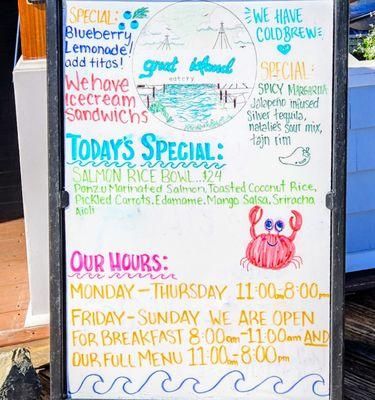 SPECIAL:
Blueberry
Lemonade!
add titos!
We have
Icecream
Sandwichs
great island
eatery
WE HAVE
COLD BREW
SPECIAL:
SPICY MARGARITA
Jalapeño infused
Silver tequila,
natalie's sour mix,
tajn rim
TODAY'S SPECIAL:
SALMON RICE BOWL...$24
Ponzu Marinated Salmon, Toasted Coconut Rice,
Pickled Carrots, Edamame, Mango Salsa, Sriracha
Aioli
OUR HOURS:
MONDAY-THURSDAY 11:00am-8:00pm
FRIDAY-SUNDAY WE ARE OPEN
FOR BREAKFAST 8:00am-11:00am AND
OUR FULL MENU 11:00am-8:00pm